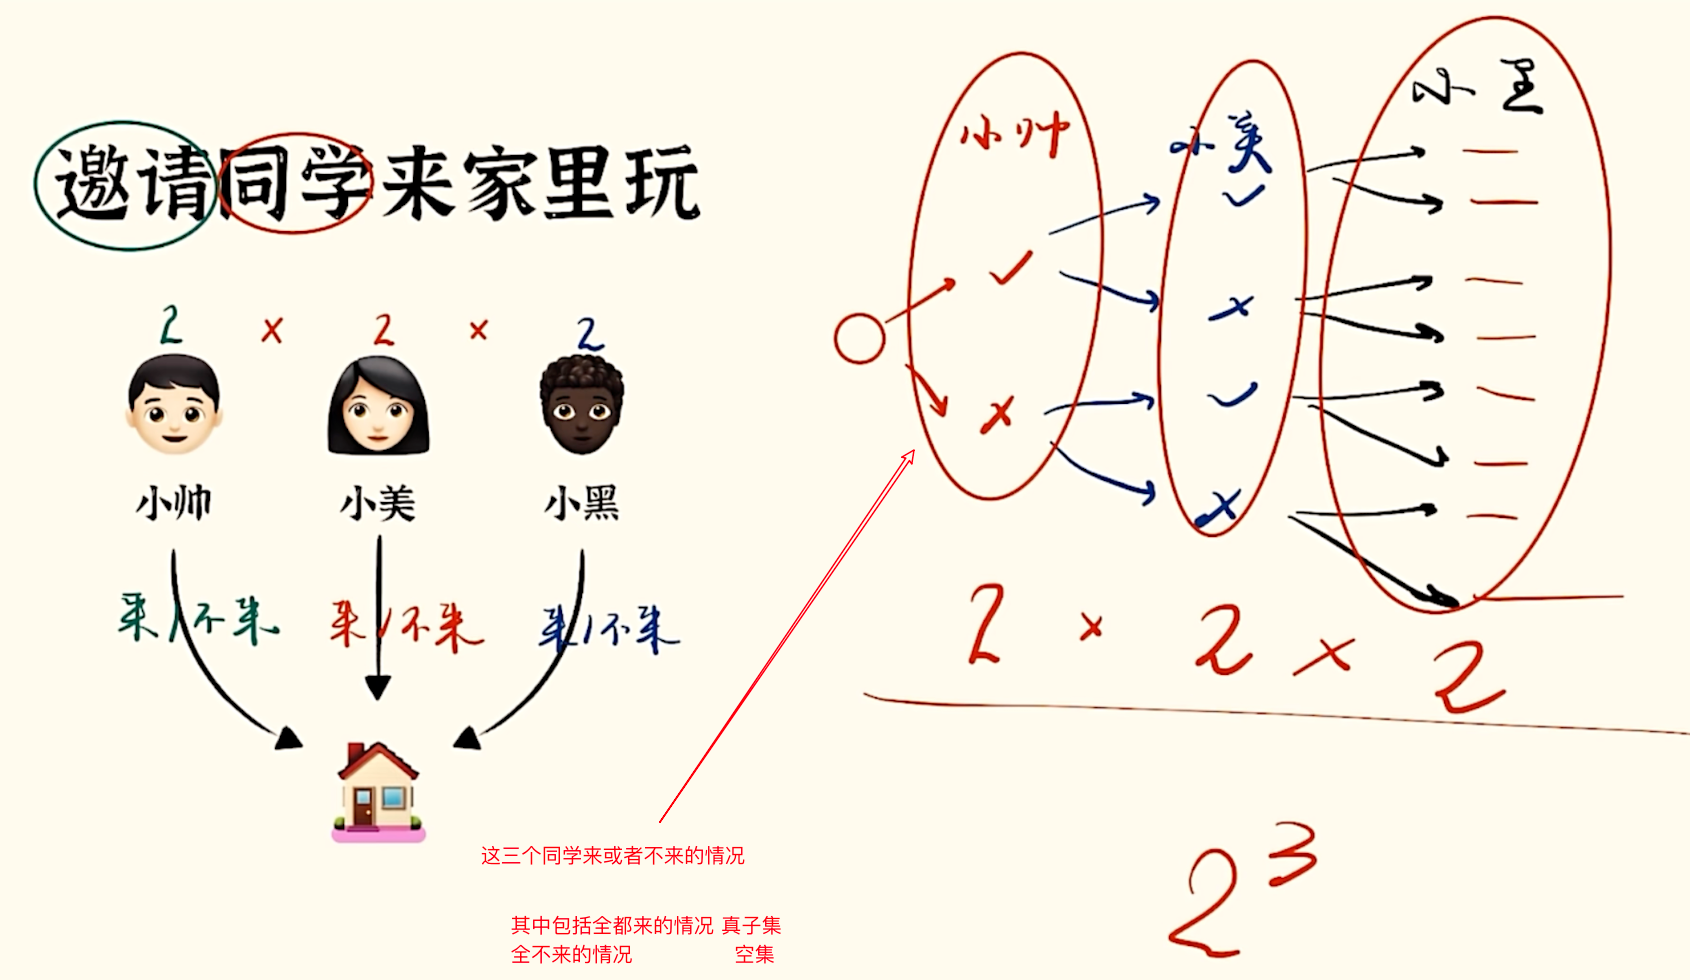 邀请同学来家里玩
2 × 2 × 2
小帅 小美 小黑
来/不来 来/不来 来/不来
这三个同学来或者不来的情况
其中包括全都来的情况 真子集
全不来的情况 空集
小帅 小美 小黑
✓ ✓
×
× ✓
×
2 × 2 × 2
2³